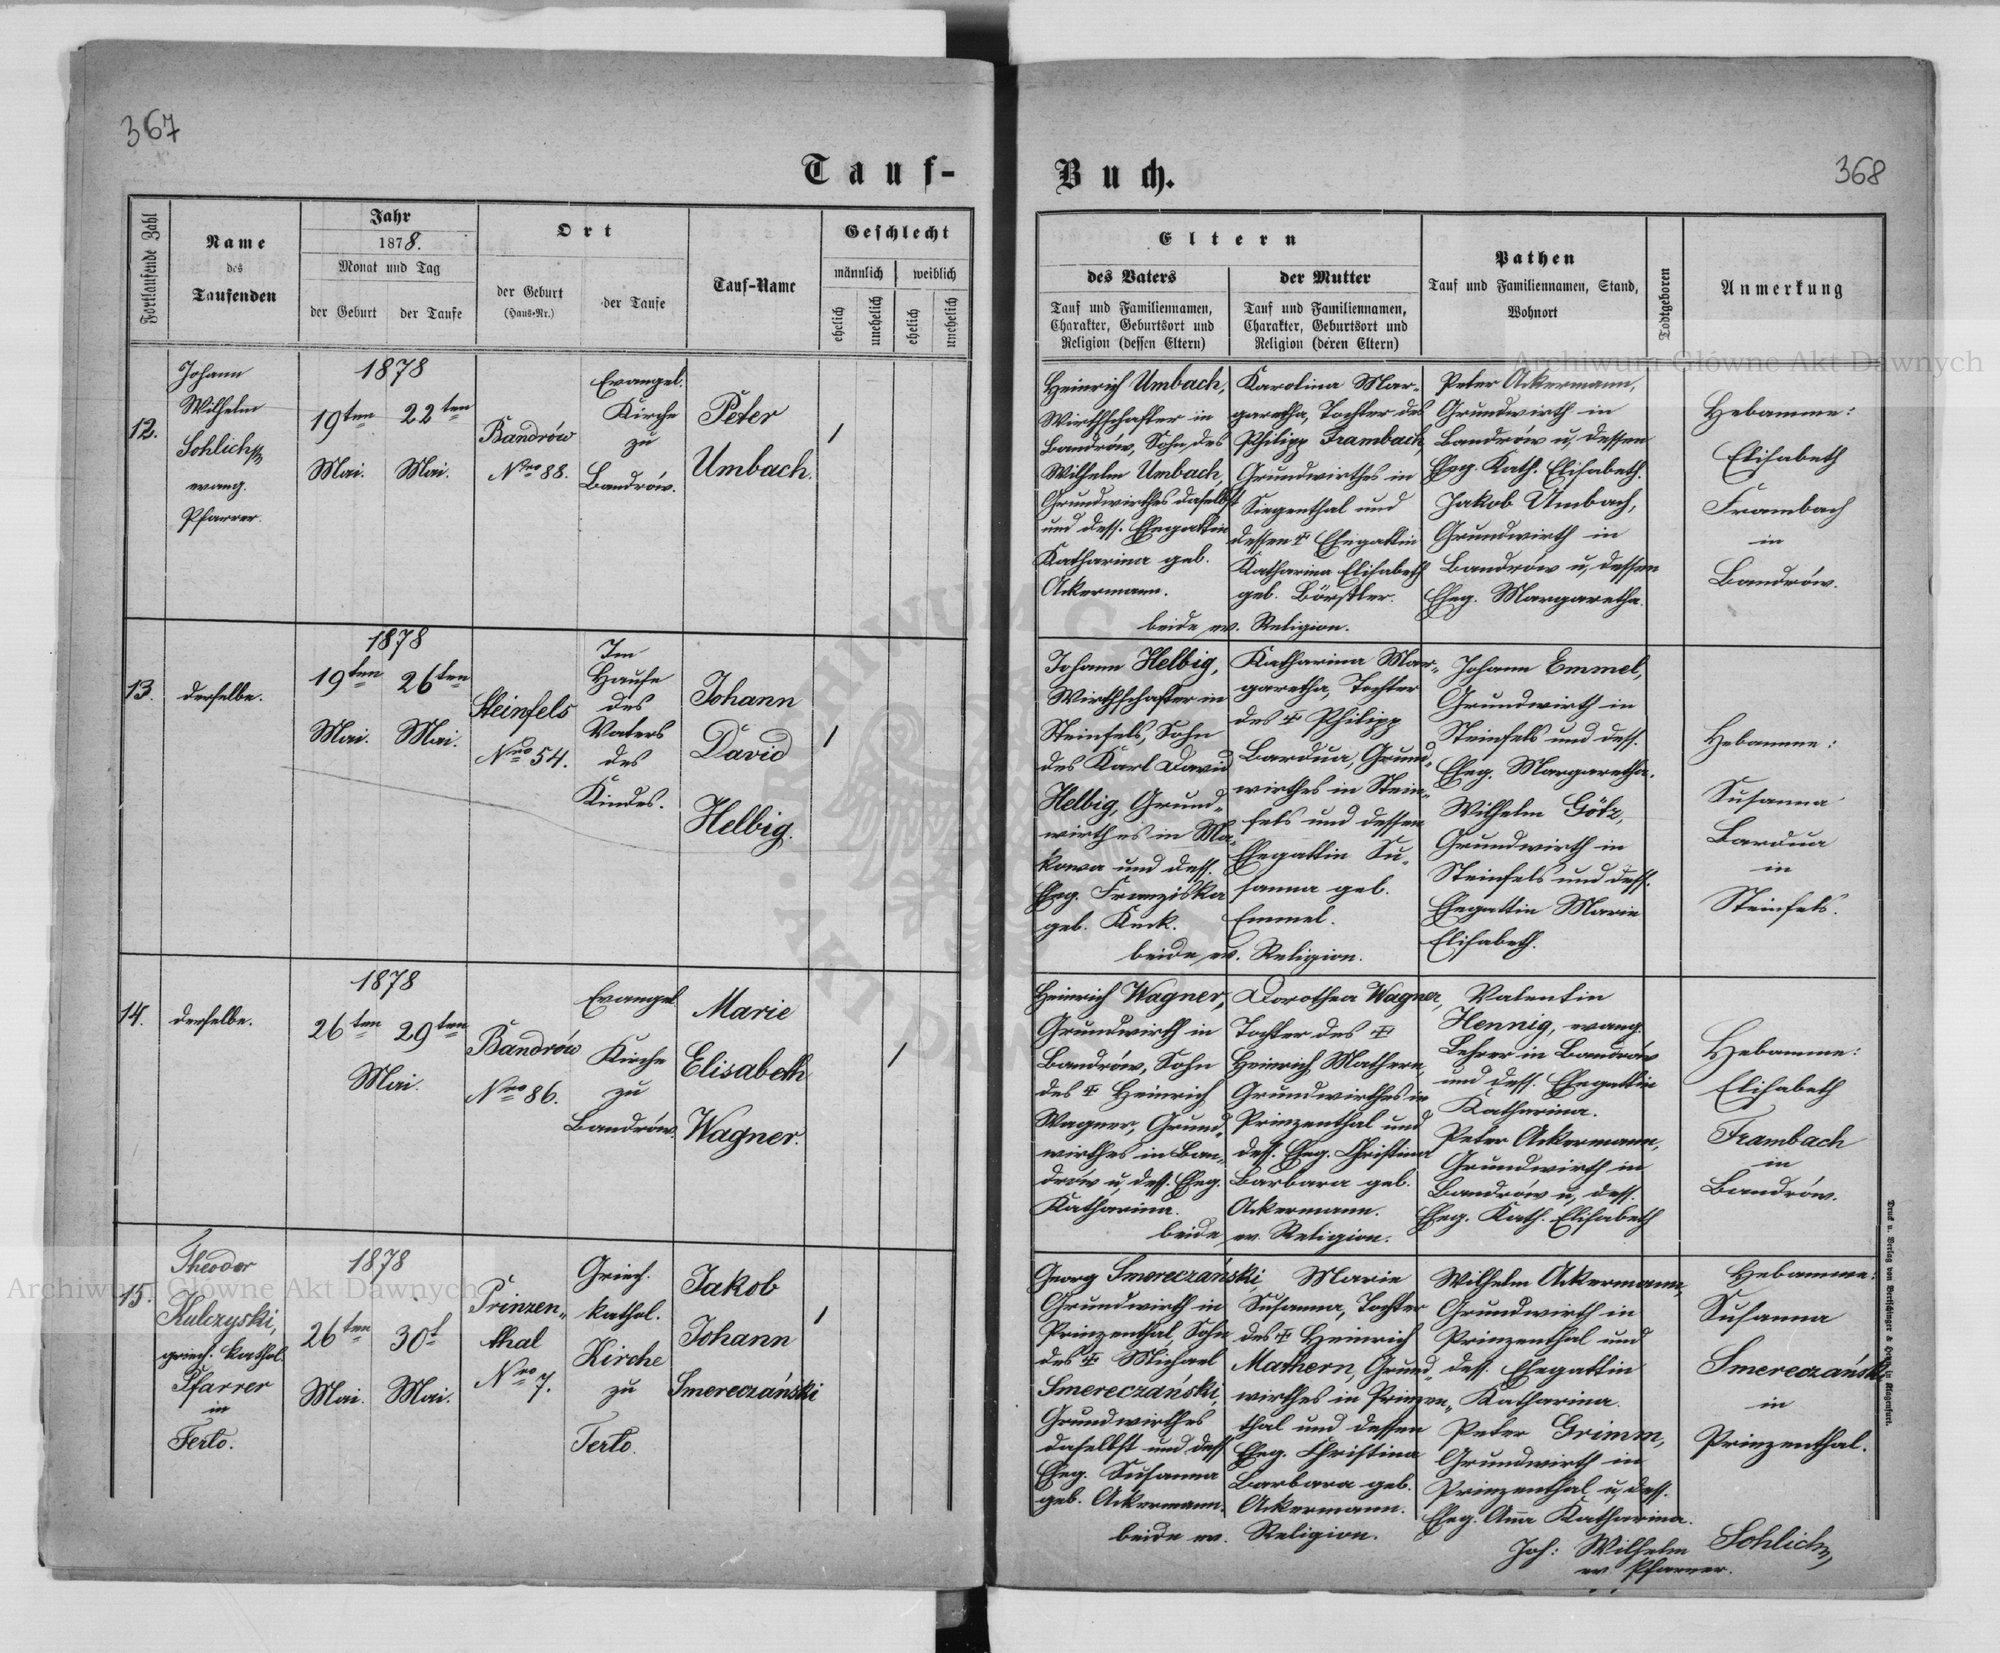 367
Tauf-
Fortlaufende Zahl
Name
des
Taufenden
Jahr
1878.
Monat und Tag
der Geburt
der Taufe
Ort
der Geburt
(Haus-Nr.)
der Taufe
Tauf-Name
Geschlecht
männlich
weiblich
ehelich
unehelich
ehelich
unehelich
12.
Johann
Wilhelm
Sohlich
evang.
Pfarrer.
1878
19ten
Mai.
22ten
Mai.
Bandrów
Nro 88.
Evangel.
Kirche
zu
Bandrów.
Peter
Umbach.
1
13.
derselbe.
1878
19ten
Mai.
26ten
Mai.
Steinfels
Nro 54.
Im
Hause
des
Vaters
des
Kindes.
Johann
David
Helbig.
1
14.
derselbe.
1878
26ten 29ten
Mai.
Bandrów
Nro 86.
Evangel.
Kirche
zu
Bandrów.
Marie
Elisabeth
Wagner.
1
15.
Theodor
Kulczyski,
griech. kathol.
Pfarrer
in
Terlo.
1878
26ten
Mai.
30t
Mai.
Prinzen-
thal
Nro 7.
Griech.
kathol.
Kirche
zu
Terlo.
Jakob
Johann
Smereczański
1
Buch.
368
Eltern
des Vaters
Tauf und Familiennamen,
Charakter, Geburtsort und
Religion (dessen Eltern)
der Mutter
Tauf und Familiennamen,
Charakter, Geburtsort und
Religion (deren Eltern)
Pathen
Tauf und Familiennamen, Stand,
Wohnort
Todtgeboren
Anmerkung
Heinrich Umbach,
Wirthschafter in
Bandrów, Sohn des
Wilhelm Umbach,
Grundwirthes daselbst
und dess. Ehegattin
Katharina geb.
Ackermann.
Karolina Mar-
garetha, Tochter des
Philipp Frambach,
Grundwirthes in
Siegenthal und
dessen ‡ Ehegattin
Katharina Elisabeth
geb. Börstler.
beide ev. Religion.
Peter Ackermann,
Grundwirth in
Bandrów u, dessen
Eheg. Kath. Elisabeth.
Jakob Umbach,
Grundwirth in
Bandrów u, dessen
Eheg. Margaretha.
Hebamme:
Elisabeth
Frambach
in
Bandrów.
Johann Helbig,
Wirthschafter in
Steinfels, Sohn
des Karl David
Helbig, Grund-
wirthes in Ma-
kowa und dess.
Eheg. Franziska
geb. Kuck.
Katharina Mar-
garetha, Tochter
des ‡ Philipp
Bardua, Grund-
wirthes in Stein-
fels und dessen
Ehegattin Su-
sanna geb.
Emmel.
beide ev. Religion.
Johann Emmel,
Grundwirth in
Steinfels und dess.
Eheg. Margaretha.
Wilhelm Götz,
Grundwirth in
Steinfels und dess.
Ehegattin Marie
Elisabeth.
Hebamme:
Susanna
Bardua
in
Steinfels.
Heinrich Wagner,
Grundwirth in
Bandrów, Sohn
des ‡ Heinrich
Wagner, Grund-
wirthes in Ban-
drów u, dess. Eheg.
Katharina.
Dorothea Wagner,
Tochter des ‡
Heinrich Mathern,
Grundwirthes in
Prinzenthal und
dess. Eheg. Christina
Barbara geb.
Ackermann.
beide ev. Religion.
Valentin
Hennig, evang.
Lehrer in Bandrów
und dess. Ehegattin
Katharina.
Peter Ackermann,
Grundwirth in
Bandrów u, dess.
Eheg. Kath. Elisabeth
Hebamme:
Elisabeth
Frambach
in
Bandrów.
Georg Smereczański,
Grundwirth in
Prinzenthal, Sohn
des ‡ Michael
Smereczański,
Grundwirthes
daselbst und dess.
Eheg. Susanna
geb. Ackermann.
Marie
Susanna, Tochter
des ‡ Heinrich
Mathern, Grund-
wirthes in Prinzen-
thal und dessen
Eheg. Christina
Barbara geb.
Ackermann.
beide ev. Religion.
Wilhelm Ackermann,
Grundwirth in
Prinzenthal und
dess. Ehegattin
Katharina.
Peter Grimm,
Grundwirth in
Prinzenthal u, dess.
Eheg. Anna Katharina.
Hebamme:
Susanna
Smereczański
in
Prinzenthal.
Joh: Wilhelm Sohlich,
ev Pfarrer.
Druck u. Verlag von Bertschinger & Heyn in Klagenfurt.
Archiwum Główne Akt Dawnych
Archiwum Główne Akt Dawnych